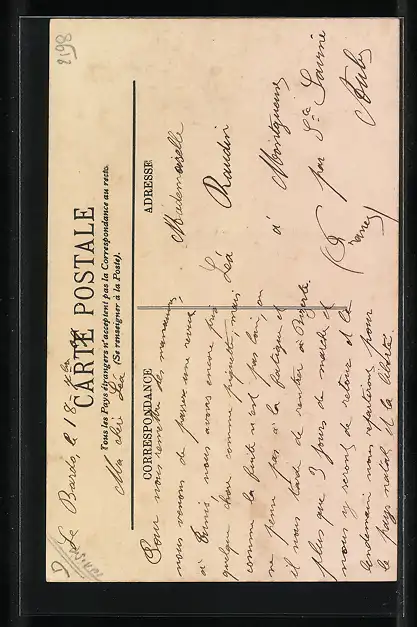 2198
Le Bardo, le 18
CARTE POSTALE
Tous les Pays étrangers n'acceptent pas la Correspondance au recto.
(Se renseigner à la Poste).
Ma chère Léa
CORRESPONDANCE
Pour nous remettre des manœuvres
nous venons de passer une revue
à Tunis nous avons encore pris
quelque chose comme mais
comme la fuite n'est pas loin, on
ne pense pas à la fatigue et
il nous tarde de rentrer à Bizerte
plus que 3 jours de marche et
nous y serons de retour et le
lendemain nous repartirons pour
le pays natal et la liberté
ADRESSE
Mademoiselle
Léa Raudin
à Montgueux
par Ste Savine
(France) Aube